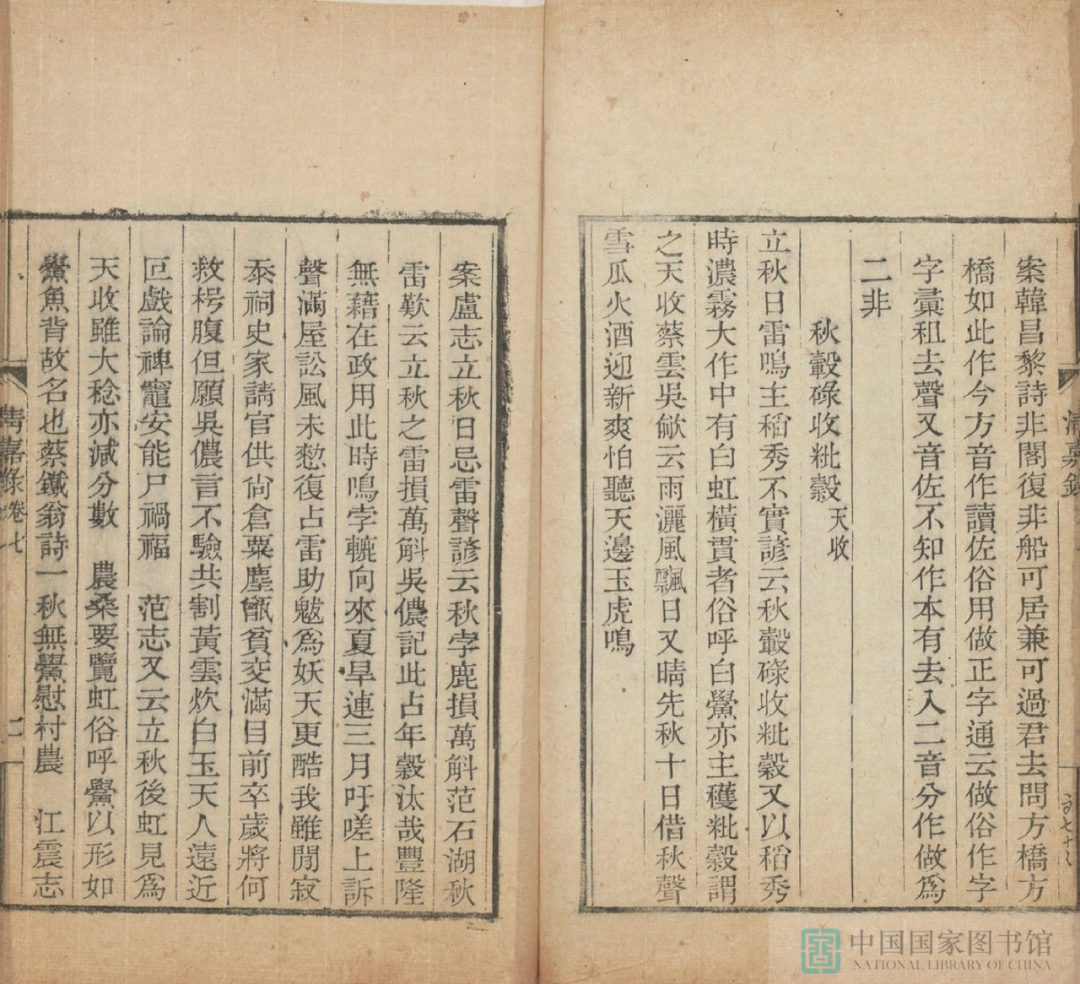 案韓昌黎詩非閣復非船可居兼可過君去問方橋方
橋如此作今方音作讀佐俗用做正字通云做俗作字
字彚租去聲又音佐不知作本有去入二音分作做爲
二非
秋轂碌收粃穀天收
立秋日雷鳴主稻秀不實諺云秋轂碌收粃穀又以稻秀
時濃霧大作中有白虹橫貫者俗呼白鱟亦主穫粃穀謂
之天收蔡雲吳歈云雨灑風飄日又晴先秋十日借秋聲
雪瓜火酒迎新爽怕聽天邊玉虎鳴
清嘉錄
案盧志立秋日忌雷聲諺云秋孛鹿損萬斛范石湖秋
雷歎云立秋之雷損萬斛吳儂記此占年穀汰哉豐隆
無藉在政用此時鳴孛轆向來夏旱連三月吁嗟上訴
聲滿屋訟風未愸復占雷助魃爲妖天更酷我雖閒寂
忝祠史家請官供尙倉粟塵甑貧交滿目前卒歲將何
救枵腹但願吳儂言不驗共割黃雲炊白玉天人遠近
叵戲論禆竈安能尸禍福　范志又云立秋後虹見爲
天收雖大稔亦減分數　農桑要覽虹俗呼鱟以形如
鱟魚背故名也蔡鐵翁詩一秋無鱟慰村農　江震志
清嘉錄卷七
二
中国国家图书馆
NATIONAL LIBRARY OF CHINA